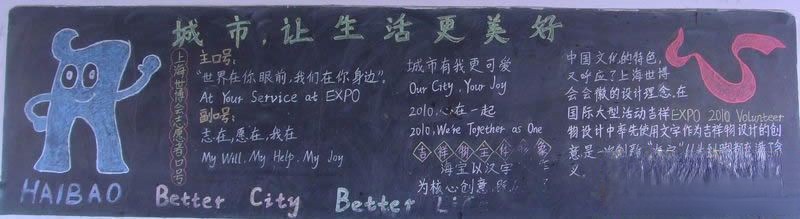 城市,让生活更美好
HAIBAO
上海世博会志愿者口号
主口号:
"世界在你眼前,我们在你身边"。
At Your Service at EXPO
副口号:
志在,愿在,我在
My Will. My Help. My Joy
城市有我更可爱
Our City, Your Joy
2010,心在一起
2010, We're Together as One
吉祥物主体形象
海宝以汉字
为核心创意
中国文化的特色,
又呼应了上海世博
会会徽的设计理念.在
国际大型活动吉祥
物设计中率先使用文字作为吉祥物设计的创
意是一次创新
义.
EXPO 2010 Volunteer
Better City Better